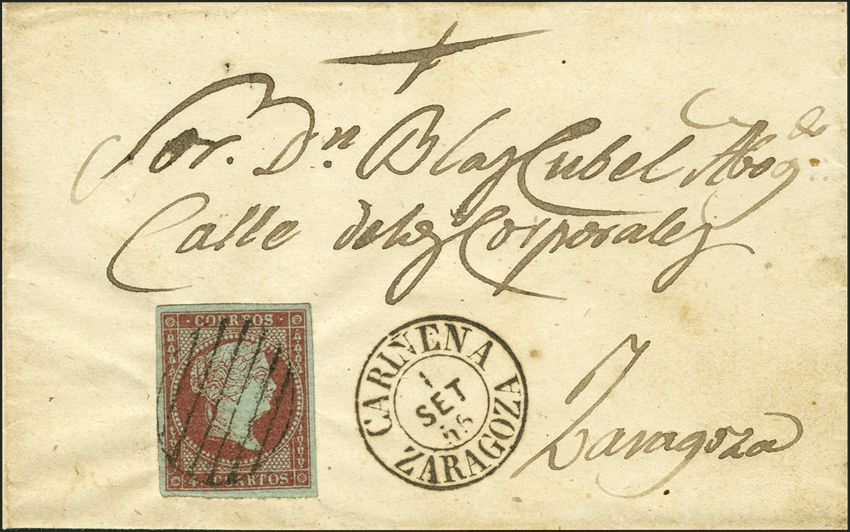 Sor. Dn Blas Cubel Abogdo
Calle de los Corporales
Zaragoza
CORREOS
4 CUARTOS
CARIÑENA
1
SET
55
ZARAGOZA